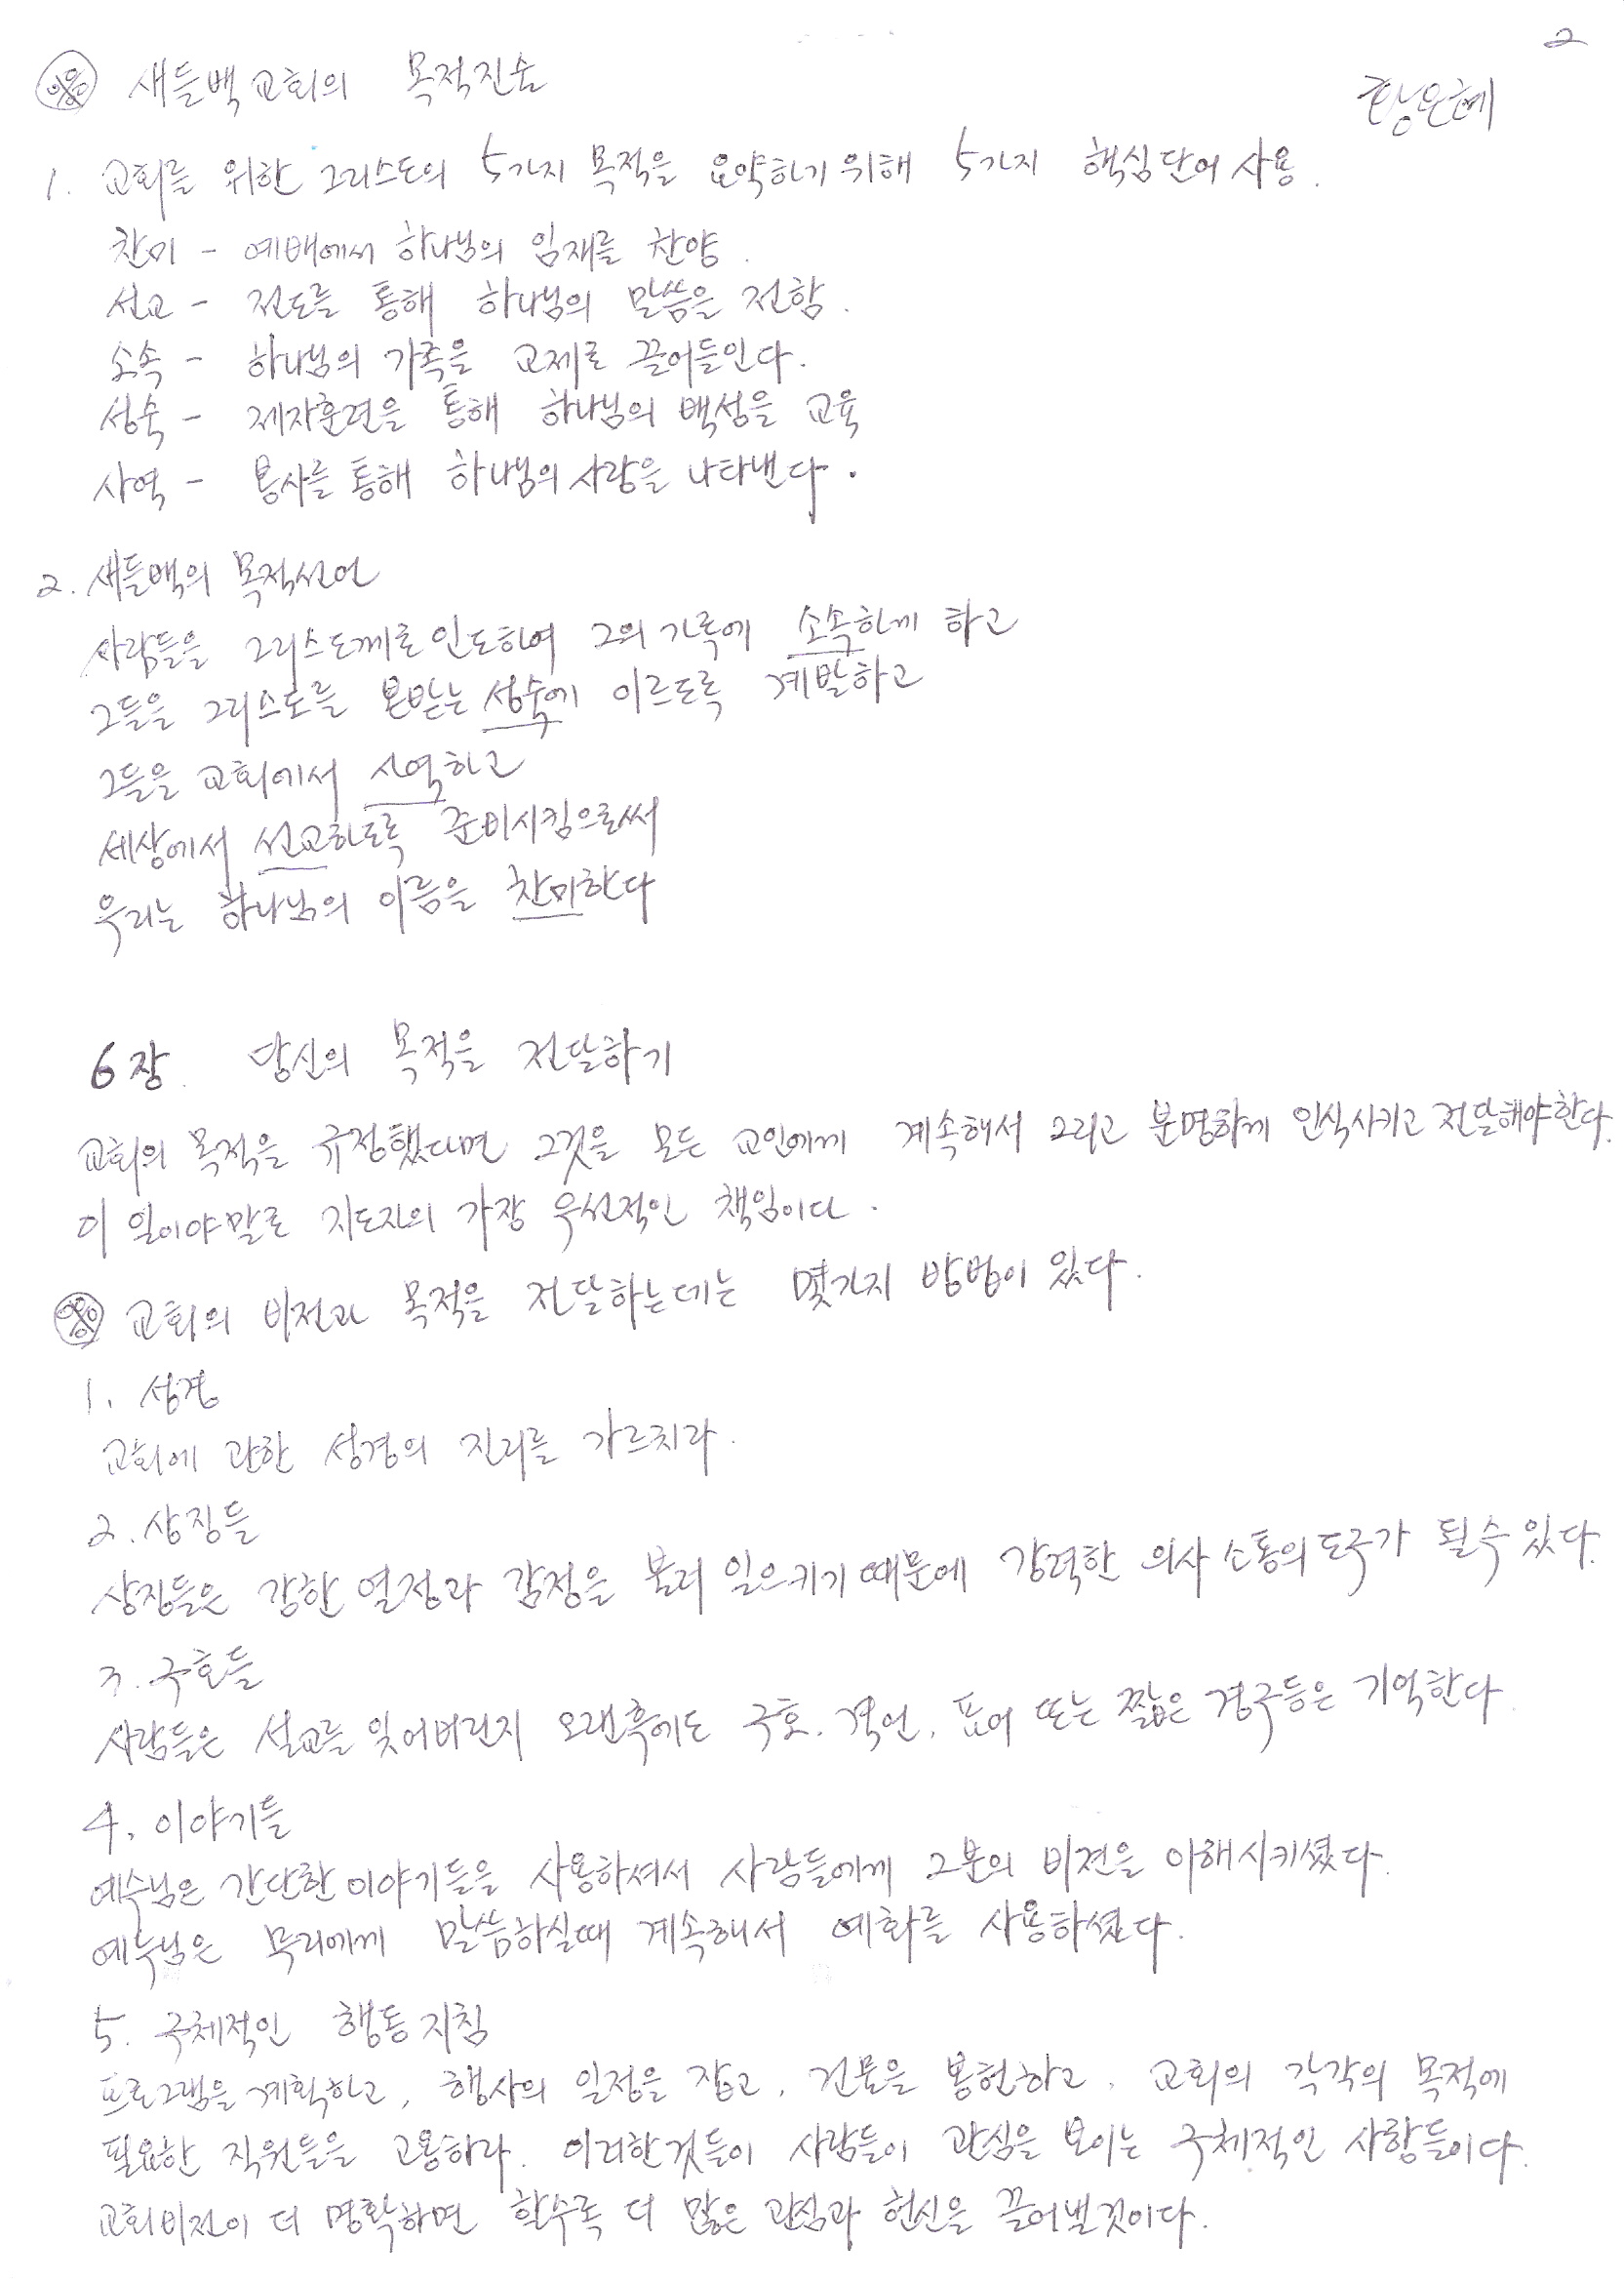 2
※ 새들백교회의 목적진술
황은혜
1. 교회를 위한 그리스도의 5가지 목적을 요약하기 위해 5가지 핵심단어 사용.
찬미 - 예배에서 하나님의 임재를 찬양.
선교 - 전도를 통해 하나님의 말씀을 전함.
소속 - 하나님의 가족을 교제로 끌어들인다.
성숙 - 제자훈련을 통해 하나님의 백성을 교육
사역 - 봉사를 통해 하나님의 사랑을 나타낸다.
2. 새들백의 목적선언
사람들을 그리스도께로 인도하여 그의 가족에 소속하게 하고
그들을 그리스도를 본받는 성숙에 이르도록 계발하고
그들을 교회에서 사역하고
세상에서 선교하도록 준비시킴으로써
우리는 하나님의 이름을 찬미한다
6장. 당신의 목적을 전달하기
교회의 목적을 규정했다면 그것을 모든 교인에게 계속해서 그리고 분명하게 인식시키고 전달해야한다.
이 일이야말로 지도자의 가장 우선적인 책임이다.
※ 교회의 비전과 목적을 전달하는데는 몇가지 방법이 있다.
1. 성경
교회에 관한 성경의 진리를 가르치라.
2. 상징들
상징들은 강한 열정과 감정을 불러 일으키기 때문에 강력한 의사소통의 도구가 될수 있다.
3. 구호들
사람들은 설교를 잊어버린지 오랜후에도 구호. 격언, 표어 또는 짧은 경구등은 기억한다.
4. 이야기들
예수님은 간단한 이야기들을 사용하셔서 사람들에게 그분의 비젼을 이해시키셨다.
예수님은 무리에게 말씀하실때 계속해서 예화를 사용하셨다.
5. 구체적인 행동지침
프로그램을 계획하고, 행사의 일정을 잡고, 건물을 봉헌하고, 교회의 각각의 목적에
필요한 직원들을 고용하라. 이러한것들이 사람들이 관심을 보이는 구체적인 사항들이다.
교회비전이 더 명확하면 할수록 더 많은 관심과 헌신을 끌어낼것이다.